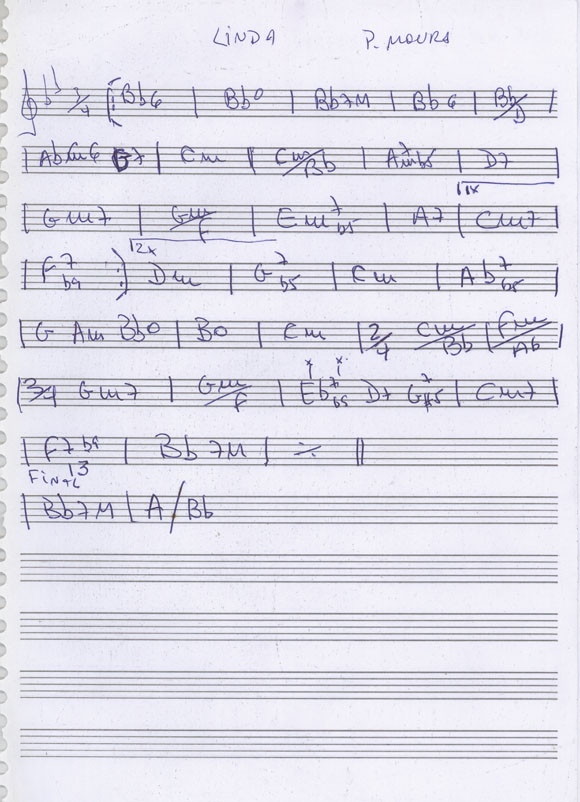 LINDA P. MOURA
3/4 Bb6 | Bb0 | Bb7M | Bb6 | Bb/D |
Abm6 G7 | Cm | Cm/Bb | Am7b5 | D7
11x
Gm7 | Gm/F | Em7b5 | A7 | Cm7 |
12x
F7b9 :) Dm | G7b5 | Cm | Ab7b5 |
| G Am Bb0 | B0 | Cm | 2/4 Cm/Bb | Fm/Ab
| 3/4 Gm7 | Gm/F | Eb7b9 D7 G7#5 | Cm7 |
| F7b9 13 | Bb7M | ٪ ||
FINAL
| Bb7M | A/Bb